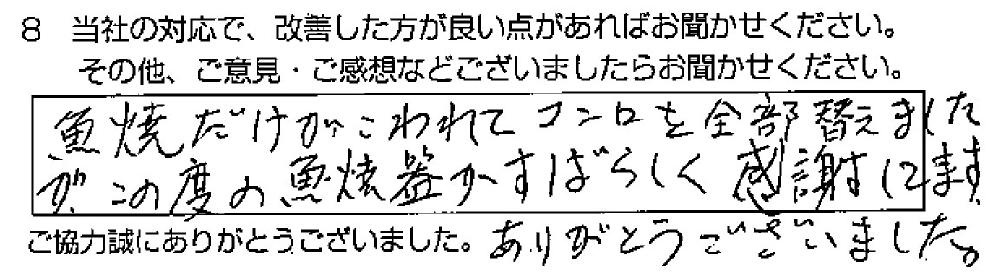 8 当社の対応で、改善した方が良い点があればお聞かせください。
その他、ご意見・ご感想などございましたらお聞かせください。
魚焼だけがこわれてコンロを全部替えました
が、この度の魚焼器がすばらしく感謝してます
ご協力誠にありがとうございました。ありがとうございました。